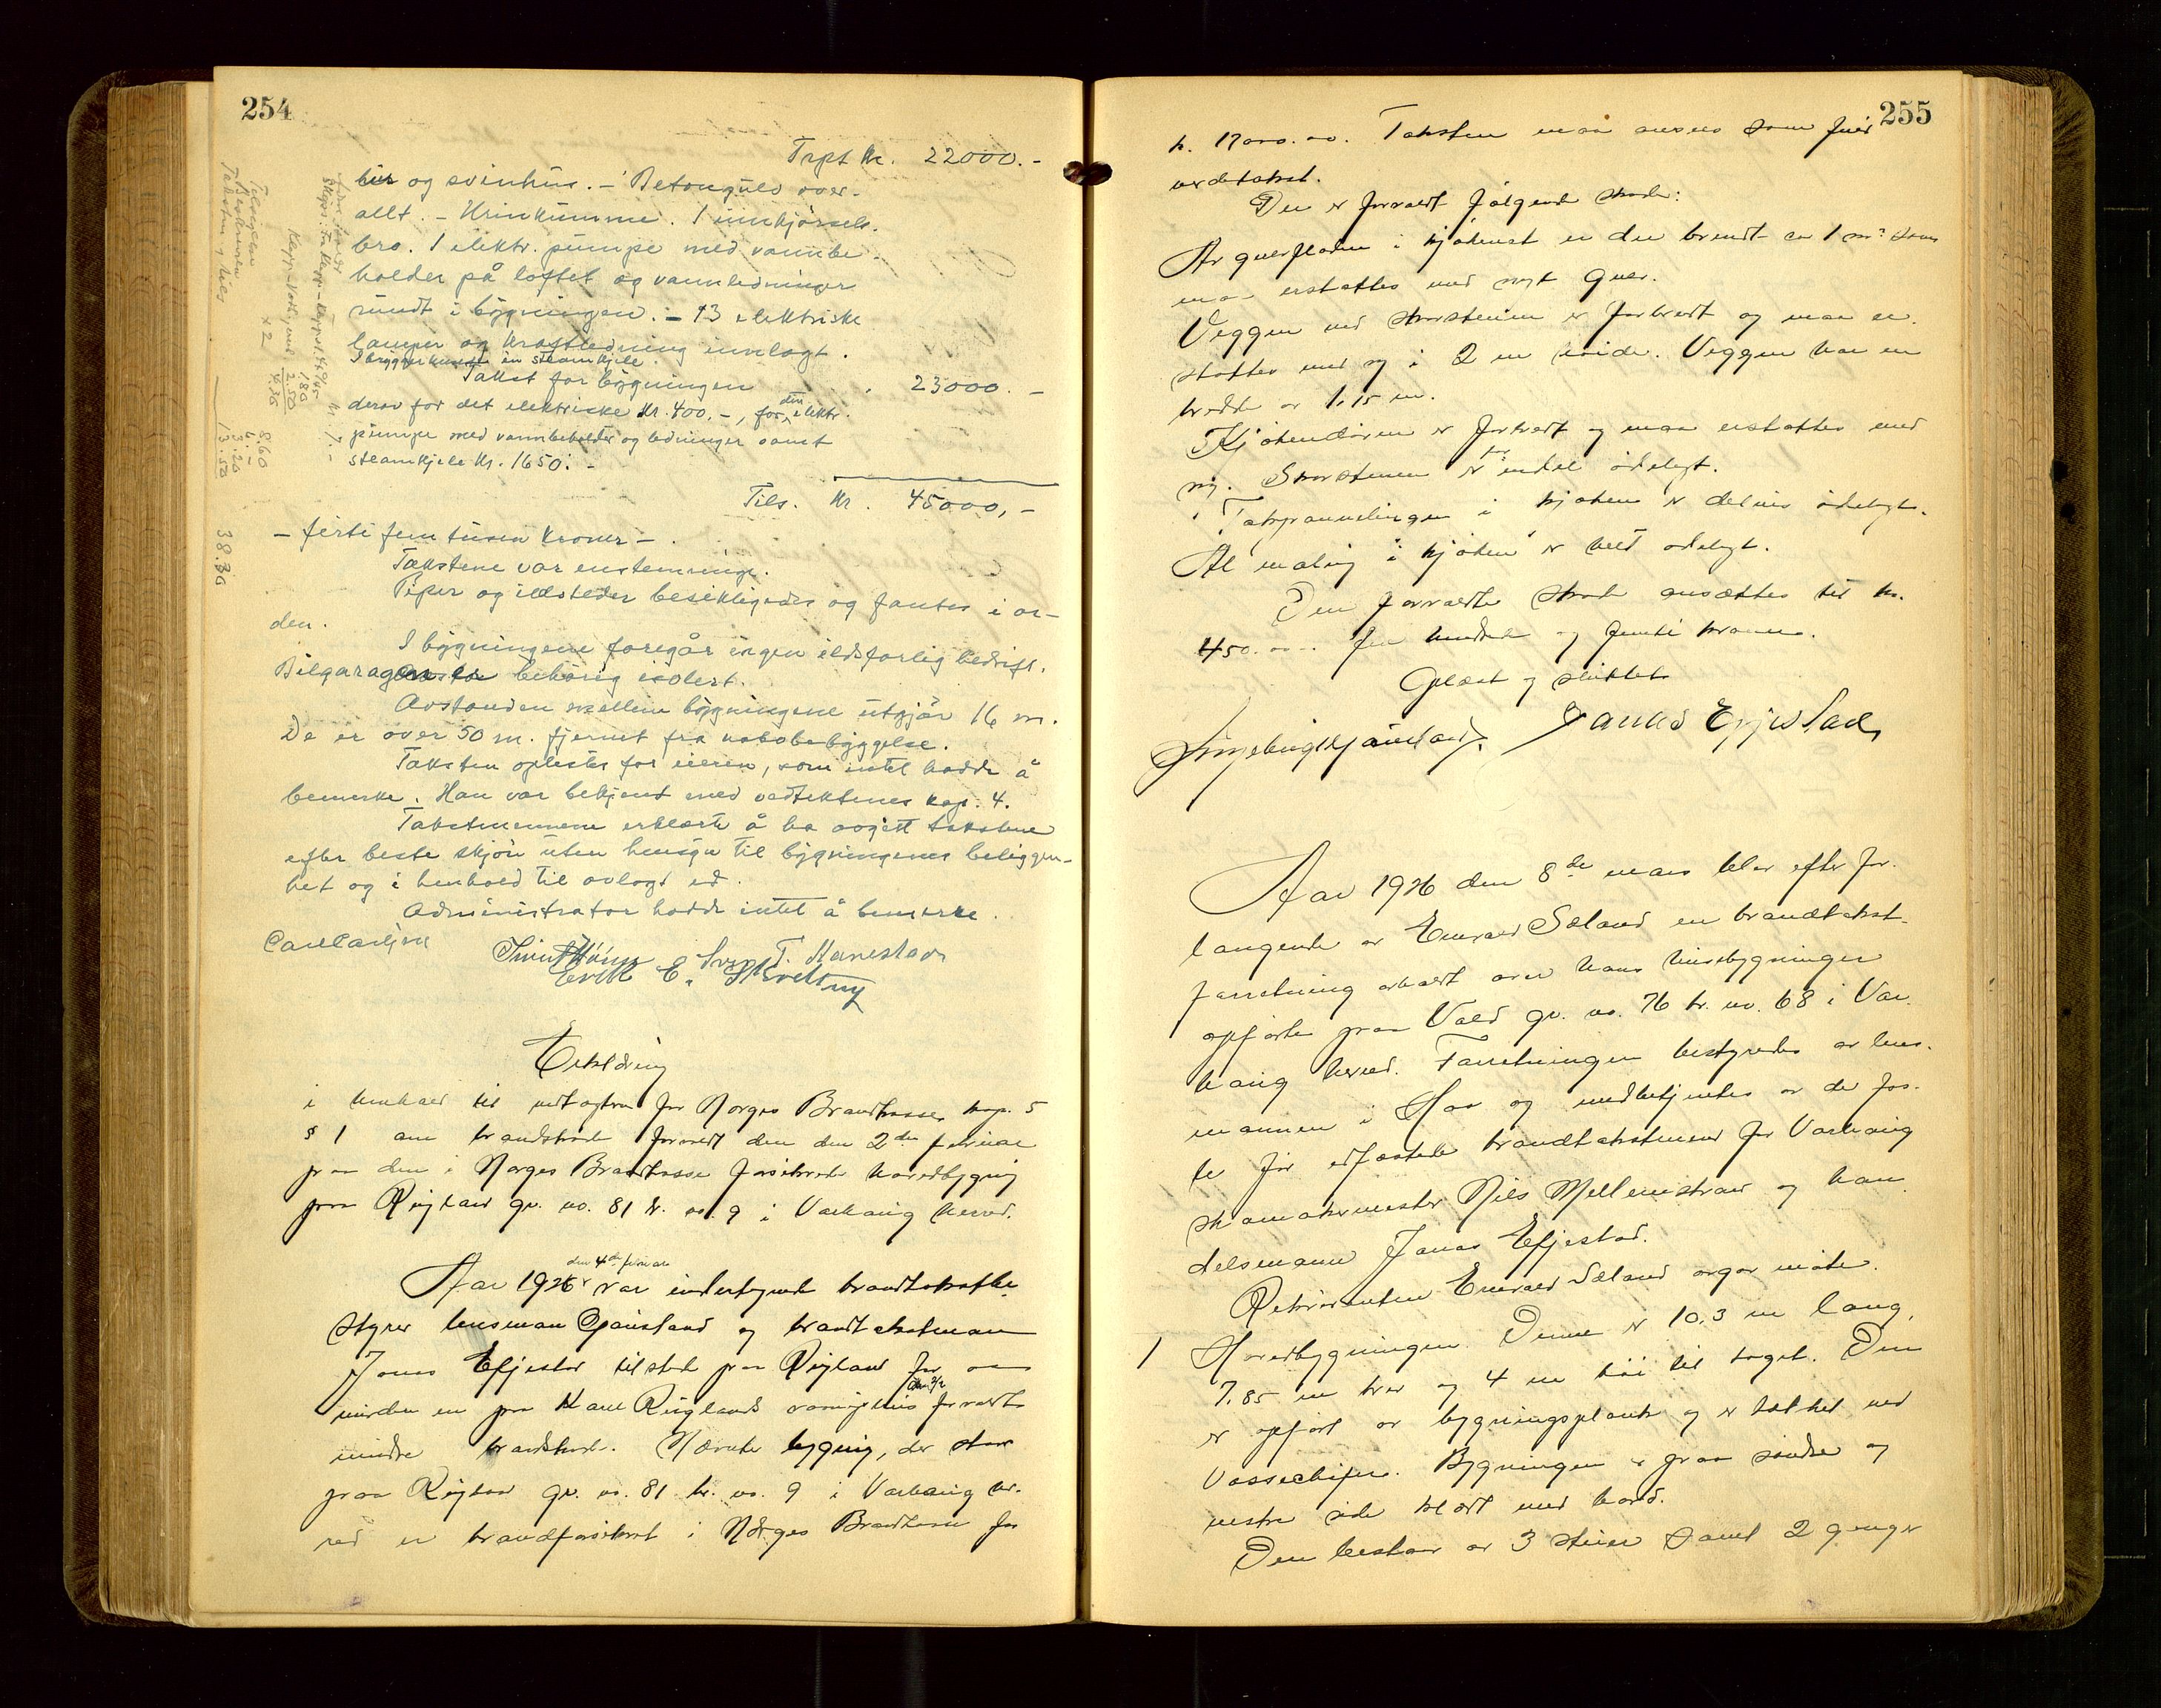 254
Trpt kr. 22000.-
hus og svinhus. - Betongulv over-
allt. - Urinkumme. 1 innkjørsels-
bro. 1 elektr. pumpe med vannbe-
holder på loftet og vannledninger
rundt i bygningen. - 13 elektriske
lamper og kraftledning innlagt.
I bryggerhuset en steamkjele.
Takst for bygningen 23000.-
derav for det elektriske kr. 400.-, for den elektr.
pumpe med vannbeholder og ledninger samt
steamkjele kr. 1650.-
Tils. kr. 45000,-
- førti fem tusen kroner - .
Takstene var enstemmige.
Piper og ildsteder besektigedes og fantes i or-
den.
I bygningene foregår ingen ildsfarlig bedrift.
Bilgaragen er behørig isolert.
Avstanden mellem bygningene utgjør 16 m.
De er over 50 m. fjernet fra nabobebyggelse.
Taksten oplestes for eieren, som intet hadde å
bemerke. Han var bekjent med vedtektenes kap. 4.
Takstmennene erklærte å ha avgitt takstene
efter beste skjøn uten hensyn til bygningenes beliggen-
het og i henhold til avlagt ed.
Administrator hadde intet å bemerke.
T. Kanestad
Erik E.
Erklæring
i henhold til vedtægtene for Norges Brandkasse kap. 5
§ 1 om brandskade forvoldt den den 2den februar
paa den i Norges Brandkasse forsikrede hovedbygning
paa Ringland gr. no. 81 br. no. 9 i Varhaug herred.
den 4de februar
Aar 1926 var undertegnede brandtakstbe-
styrer lensman Gjøusland og brandtakstmann
Jonas Efjestad tilstede paa Ringland for om
den 2/2
mindre brandskade. Nævnte bygning, der staar
paa Ringland gr. no. 81 br. no. 9 i Varhaug her-
red er brandforsikret i Norges Brandkasse for
255
k. 17000.00. Taksten maa ansees som fuld
verdetakst.
Der er forvoldt følgende skade:
Av gulvfladen i kjøkenet er der brendt ca 1 m² som
maa erstattes med nyt gulv.
Veggen ved skorstenen er forbrent og maa er-
stattes med ny i 2 m høide. Veggen har en
bredde av 1,15 m.
Kjøkendøren er forbrent og maa erstattes med
ny. Skorstenen er for endel ødelagt.
Takpanelingen i kjøken er delvis ødelagt.
Al maling i kjøken er helt ødelagt.
Den forvoldte skade ansættes til kr.
450.00 - fire hundrede og femti kroner.
Oplæst og sluttet
Jonas Efjestad
Aar 1926 den 8de mars blev efter for-
langende av Enevald Sæland en brandtakst-
forretning avholdt over hans husebygninger
opførte paa Vold gr. no. 76 br. no. 68 i Var-
haug herred. Forretningen bestyredes av lens-
mannen i Haa og medbetjentes av de fas-
te før edfæstede brandtakstmænd for Varhaug
skomakermester Nils Mellemstrand og han-
delsmann Jonas Efjestad.
Rekvirenten Enevald Sæland avgav møte.
1 Hovedbygningen. Denne er 10,3 m lang,
7,85 m bred og 4 m høi til taget. Den
er opført av bygningsplank og er tækket med
Vosseskifer. Bygningen er paa søndre og
vestre side klædt med bord.
Den bestaar av 3 stuer samt 2 ganger